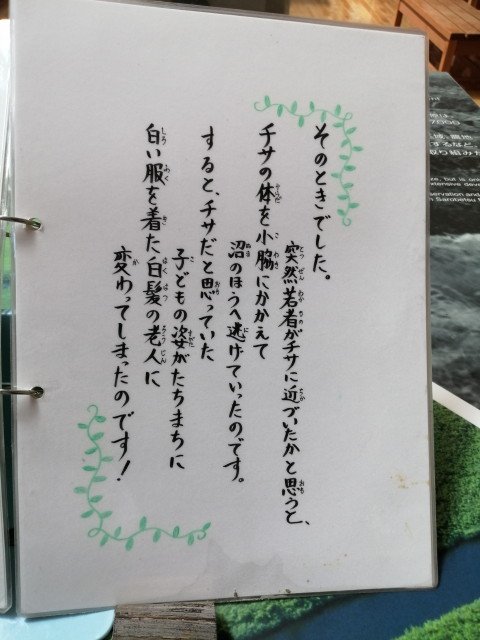 そのときでした。
突然若者がチサに近づいたかと思うと、
チサの体を小脇にかかえて
沼のほうへ逃げていったのです。
すると、チサだと思っていた
子どもの姿がたちまちに
白い服を着た白髪の老人に
変わってしまったのです!